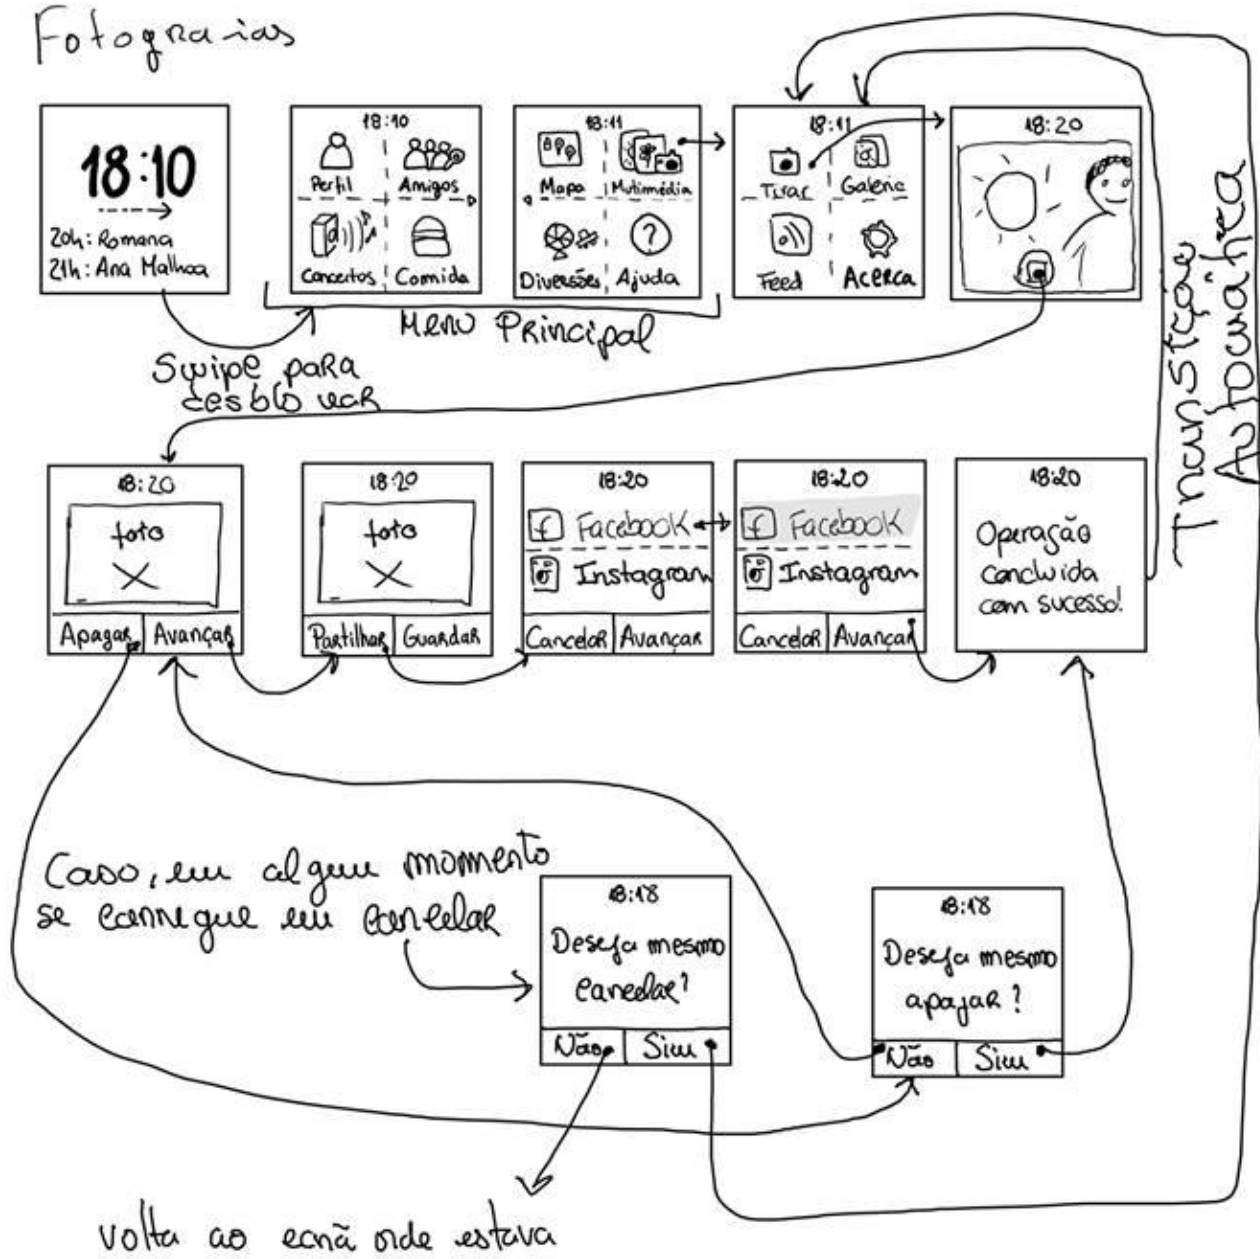 Fotogra ias
18:10
20h: Romana
21h: Ana Malhoa
18:10
Perfil
Amigos
Concertos
Comida
18:11
Mapa
Multimédia
Diversões
Ajuda
18:11
Tirar
Galeria
Feed
Acerca
18:20
Menu Principal
Swipe para
desblo uear
Transição
Automática
18:20
foto
Apagar
Avançar
18:20
foto
Partilhar
Guardar
18:20
Facebook
Instagram
Cancelar
Avançar
18:20
Facebook
Instagram
Cancelar
Avançar
18:20
Operação
concluida
com sucesso!
Caso, em algum momento
se carregue em cancelar
18:18
Deseja mesmo
cancelar?
Não
Sim
18:18
Deseja mesmo
apagar?
Não
Sim
volta ao ecrã onde estava